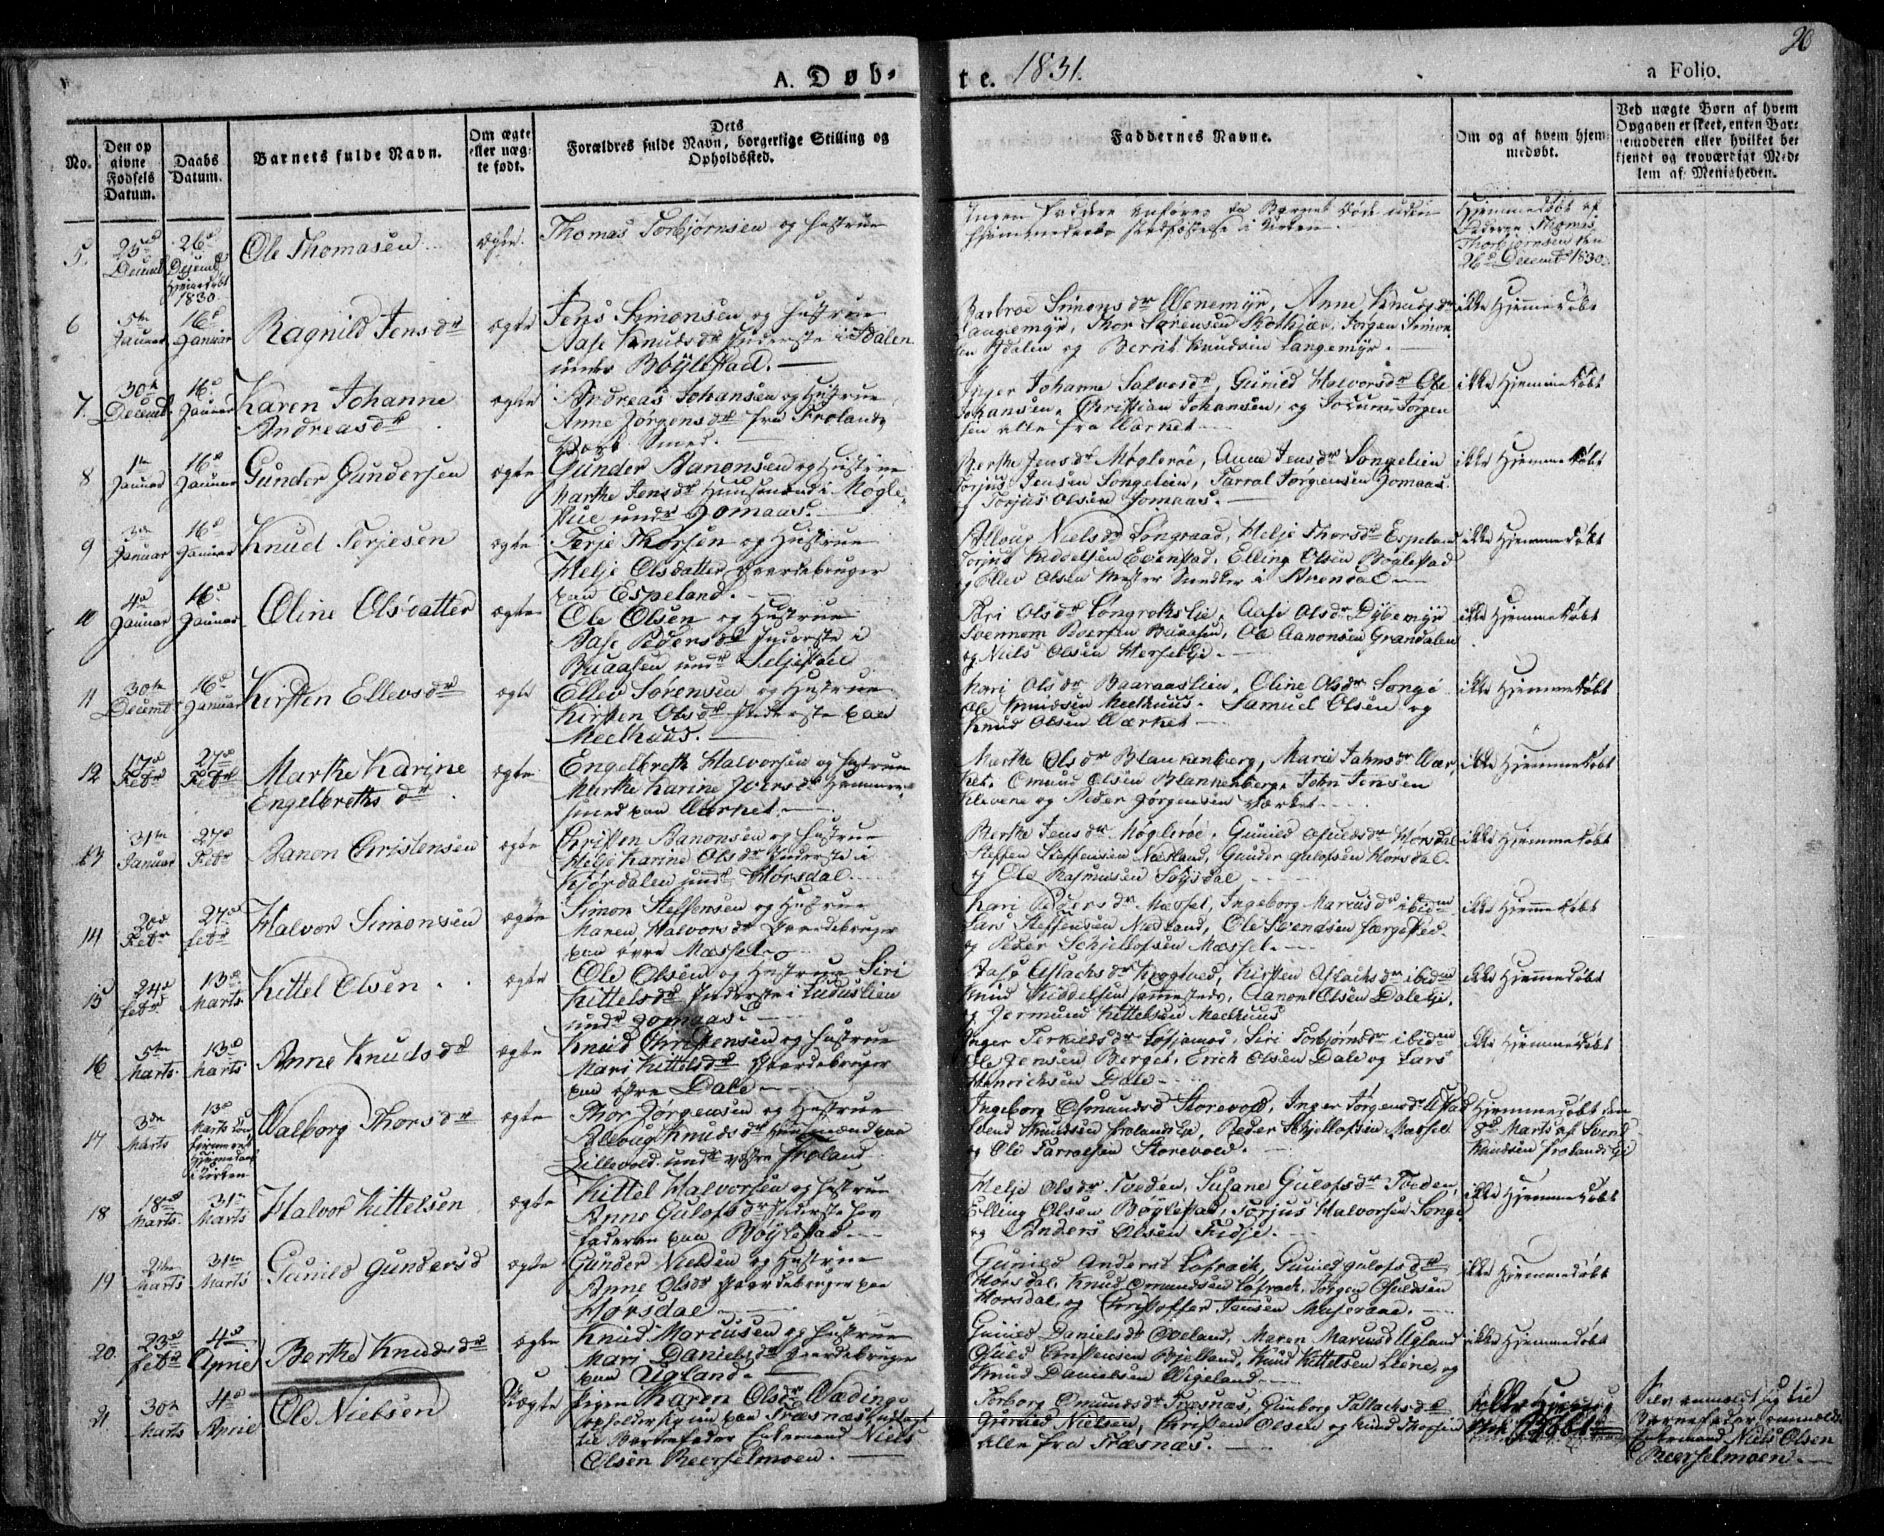 A. Døb-
te. 1831.
a Folio.
20
No.
Den op
givne
Fødsels
Datum.
Daabs
Datum.
Barnets fulde Navn.
Om ægte
eller uæg-
te født.
Dets
Forældres fulde Navn, borgerlige Stilling og
Opholdssted.
Faddernes Navne.
Om og af hvem hjem-
medøbt.
Ved uægte Børn af hvem
Opgaven er skeet, enten Bar-
nemoderen eller hvilket be-
kjendt og troværdigt Med-
lem af Menigheden.
5.
25de
Decemb
26de
1830
Ole Thomasen
ægte.
Thomas Torbjørnsen og Hustrue
Hjemmedøbt af
Faderen Thomas
Thorbjørnsen den
26de Decemb 1830.
6
5te
Januar
16de
Januar
Ragnild Jensdr
ægte
Jens Simonsen og Hustrue
Aase Knudsdr Inderste i Ødalen
under Bøylestad.
Barbroe Simonsdr Wenemyr, Anne Knudsdr
Langemyr, Thor Sørensen Stotkjær, Jørgen Simon
sen Ødalen og Berrit Knudsen Langemyr.
ikke Hjemmedøbt
7.
30te
Decemb
16de
Januar
Karen Johanne
Andreasdr
ægte
Andreas Johansen og Hustrue
Anne Jørgensdr fra Frolands
Værk Smed.
Inger Johanne Salvesdr, Gunild Halvorsdr Ole
Johansen, Christian Johansen, og Jocum Jørgen
sen alle fra Værket
ikke Hjemmedøbt
8
1te
Januar
16de
Januar
Gunder Gundersen
ægte
Gunder Aanonsen og Hustrue
Marthe Jensdr Huusmand i Møgle-
undr Jomaas.
Berthe Jensdr Møglerøe, Anne Jensdr Songelien
Torjus Jensen Songelien, Tarral Jørgensen Jomaas.
og Torjus Olsen Jomaas.
ikke Hjemmedøbt
9
3de
Januar
16de
Januar
Knud Terjesen
ægte
Terje Thorsen og Hustrue
Helje Olsdatter Gaardebruger
paa Espeland.
Alloug Nielsdr Løngraad, Helje Thorsdr Espeland
Torjus Kiddelsen Evenstad, Elling Olsen Bøylestad
og Ellev Olsen Mester Snedker i Arendal
ikke Hjemmedøbt
10
4de
Januar
16de
Januar
Oline Olsdatter
ægte
Ole Olsen og Hustrue
Aase Pedersdr Inderste i
Buaasen undr Seljestøel
Kari Olsdr Løngrokslie, Aase Olsdr Dybemyr
Buaasen, Ole Aanonsen Grandalen
og Niels Olsen Herselje.
ikke Hjemmedøbt
11
30te
Decemb
16de
Januar
Kirsten Ellevsdr
ægte
Ellev Sørensen og Hustrue
Kirsten Olsdr Inderste paa
Meelhuus.
Kari Olsdr Baaraaslien, Oline Olsdr Songe
Ole Knudsen Meelhuus. Samuel Olsen og
Knud Olsen Værket
ikke Hjemmedøbt
12
17de
Febr
27de
Febr
Marthe Karine
Engelbrethsdr
ægte
Engelbreth Halvorsen og Hustrue
Marthe Karine Iversdr Hammer-
smed paa Værket.
Marthe Olsdr Blankenberg, Marie Jahnsdr Vær
ket, Omund Olsen Blankenberg, John Jensen
Klevene og Peder Jørgensen Værket
ikke Hjemmedøbt
13
31te
Januar
27de
Febr
Aanon Christensen
ægte
Christen Aanonsen og Hustrue
Helje Karine Olsdr Inderste i
Kjørdalen undr Horsdal.
Berthe Jensdr Møglerøe. Gunild Osuldsdr Horsdal
Steffen Steffensen Nedland, Gunder Gulofsen Horsdal.
og Ole Rasmusen Solysdal
ikke Hjemmedøbt
14
20de
Febr
27de
Febr
Halvor Simonsen
ægte
Simon Steffensen og Hustrue
Maren Halvorsdr Gaardebruger
paa øvre Mæssel.
Kari Pedersdr Mæssel, Ingeborg Marcusdr ibidm
Lars Steffensen Nedland, Ole Svendsen Færgested
og Peder Schjellofsen Mæssel.
ikke Hjemmedøbt
15
24de
Febr
13de
Marts
Kittel Olsen
ægte
Ole Olsen og Hustrue Siri
Kittelsdr Inderste i Luduslien
undr Jomaas.
Aase Aslachsdr Kragtved, Kirsten Aslachsdr ibidm
Knud Kiddelsen sammesteds, Aanon Olsen Dalelie.
og Jermund Kittelsen Meelhuus
ikke Hjemmedøbt
16
5te
Marts
13de
Marts
Anne Knudsdr
ægte
Knud Christensen og Hustrue
Mari Kittelsdr Gaardebruger
paa østre Dale
Inger Terkieldsdr Løsjamoe, Siri Torbjørnsdr ibidm
Ole Jensen Berget, Erich Olsen Dale og Lars
Henrichsen Dale
ikke Hjemmedøbt
17
3de
Marts
13de
Marts
Walborg Thorsdr
ægte
Thor Jørgensen og Hustrue
Allevug Knudsdr Huusmand paa
Lillevold undr vestre Froland.
Ingeborg Osmundsd Storevold, Inger Jørgensdr Ustad
Svend Knudsen Frolandslie, Peder Schjellofsen Mæssel
og Ole Tarralsen Storevold.
Hjemmedøbt den
Marts af Svend
Knudsen Frolandslie
18
18de
Marts
31te
Marts
Halvor Kittelsen
ægte
Kittel Halvorsen og Hustrue
Anne Gulofsdr Inderste hos
Faderen paa Bøylestad
Helje Olsdr Tveden, Susane Gulofsdr Tveden,
Elling Olsen Bøylestad, Torjus Halvorsen Songe
og Anders Olsen Fidje.
ikke Hjemmedøbt
19
Marts
31te
Marts
Gunild Gundersd
ægte
Gunder Nielsen og Hustrue
Anne Olsdr Gaardebruger paa
Horsdal
Gunild Andersd Løfrach, Gunild Gulofsdr
Horsdal, Knud Omundsen Løfrach, Jørgen Osuldsen
Horsdal, og Christoffer Jensen Museraae.
ikke Hjemmedøbt
20.
23de
Febr
4de
April
Berthe Knudsdr
ægte
Knud Marcusen og Hustrue
Mari Danielsdr Gaardebruger
paa Ugland.
Gunild Danielsdr Oveland, Maren Marcusd Ugland
Osuld Christensen Bjelland, Knud Kittelsen Liene, og
Knud Danielsen Vigeland
ikke Hjemmedøbt
21.
30te
Marts
4de
April
Ole Nielsen
Uægte
Pigen Karen Olsdr Væding-
opholder sig nu paa Træsnæs, udlagt
til Barnefader Enkemand Niels
Olsen Beerselmoen.
Torborg Omundsdr Træsnæs, Gunborg
Nielsen, Christen Olsen og Knud
alle fra Træsnæs.
Selv anmeldt sig til
Barnefader
Enkemand Niels Olsen
Beerselmoen.